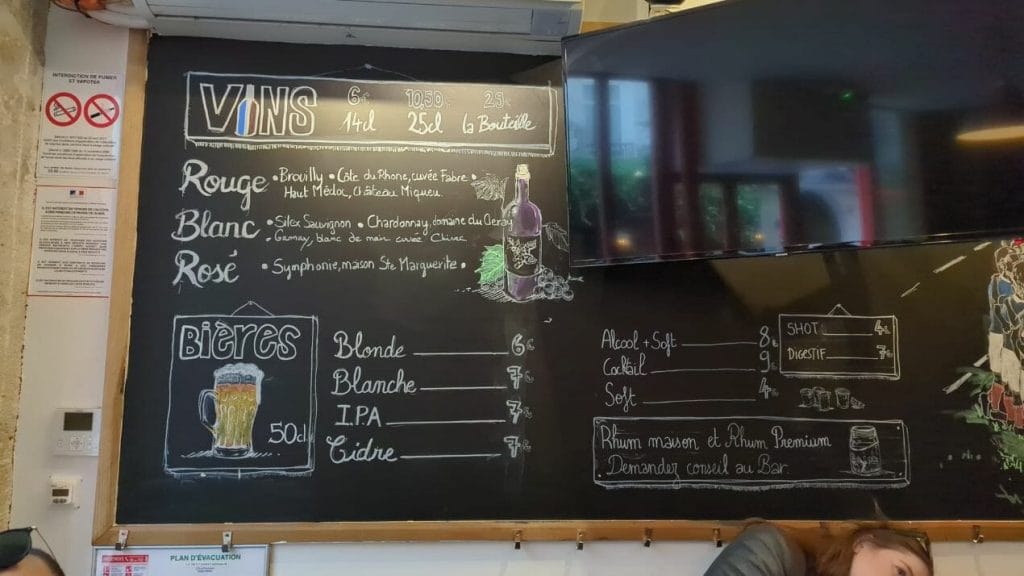 INTERDICTION DE FUMER
ET VAPOTER
VINS
6€ 10,50 25€
14cl 25cl la Bouteille
Rouge • Brouilly • Côte du Rhone, cuvée Fabre •
Haut Médoc, Château Miqueu
Blanc • Silex Sauvignon • Chardonnay, domaine du
Gamay, blanc de
Rosé • Symphonie, maison Ste Marguerite •
BIÈRES
50cl
Blonde 6€
Blanche 7€
I.P.A 7€
Cidre 7€
Alcool + Soft 8€
Cocktail 9€
Soft 4€
SHOT 4€
DIGESTIF 7€
Rhum maison et Rhum Premium
Demander conseil au Bar.
PLAN D'ÉVACUATION